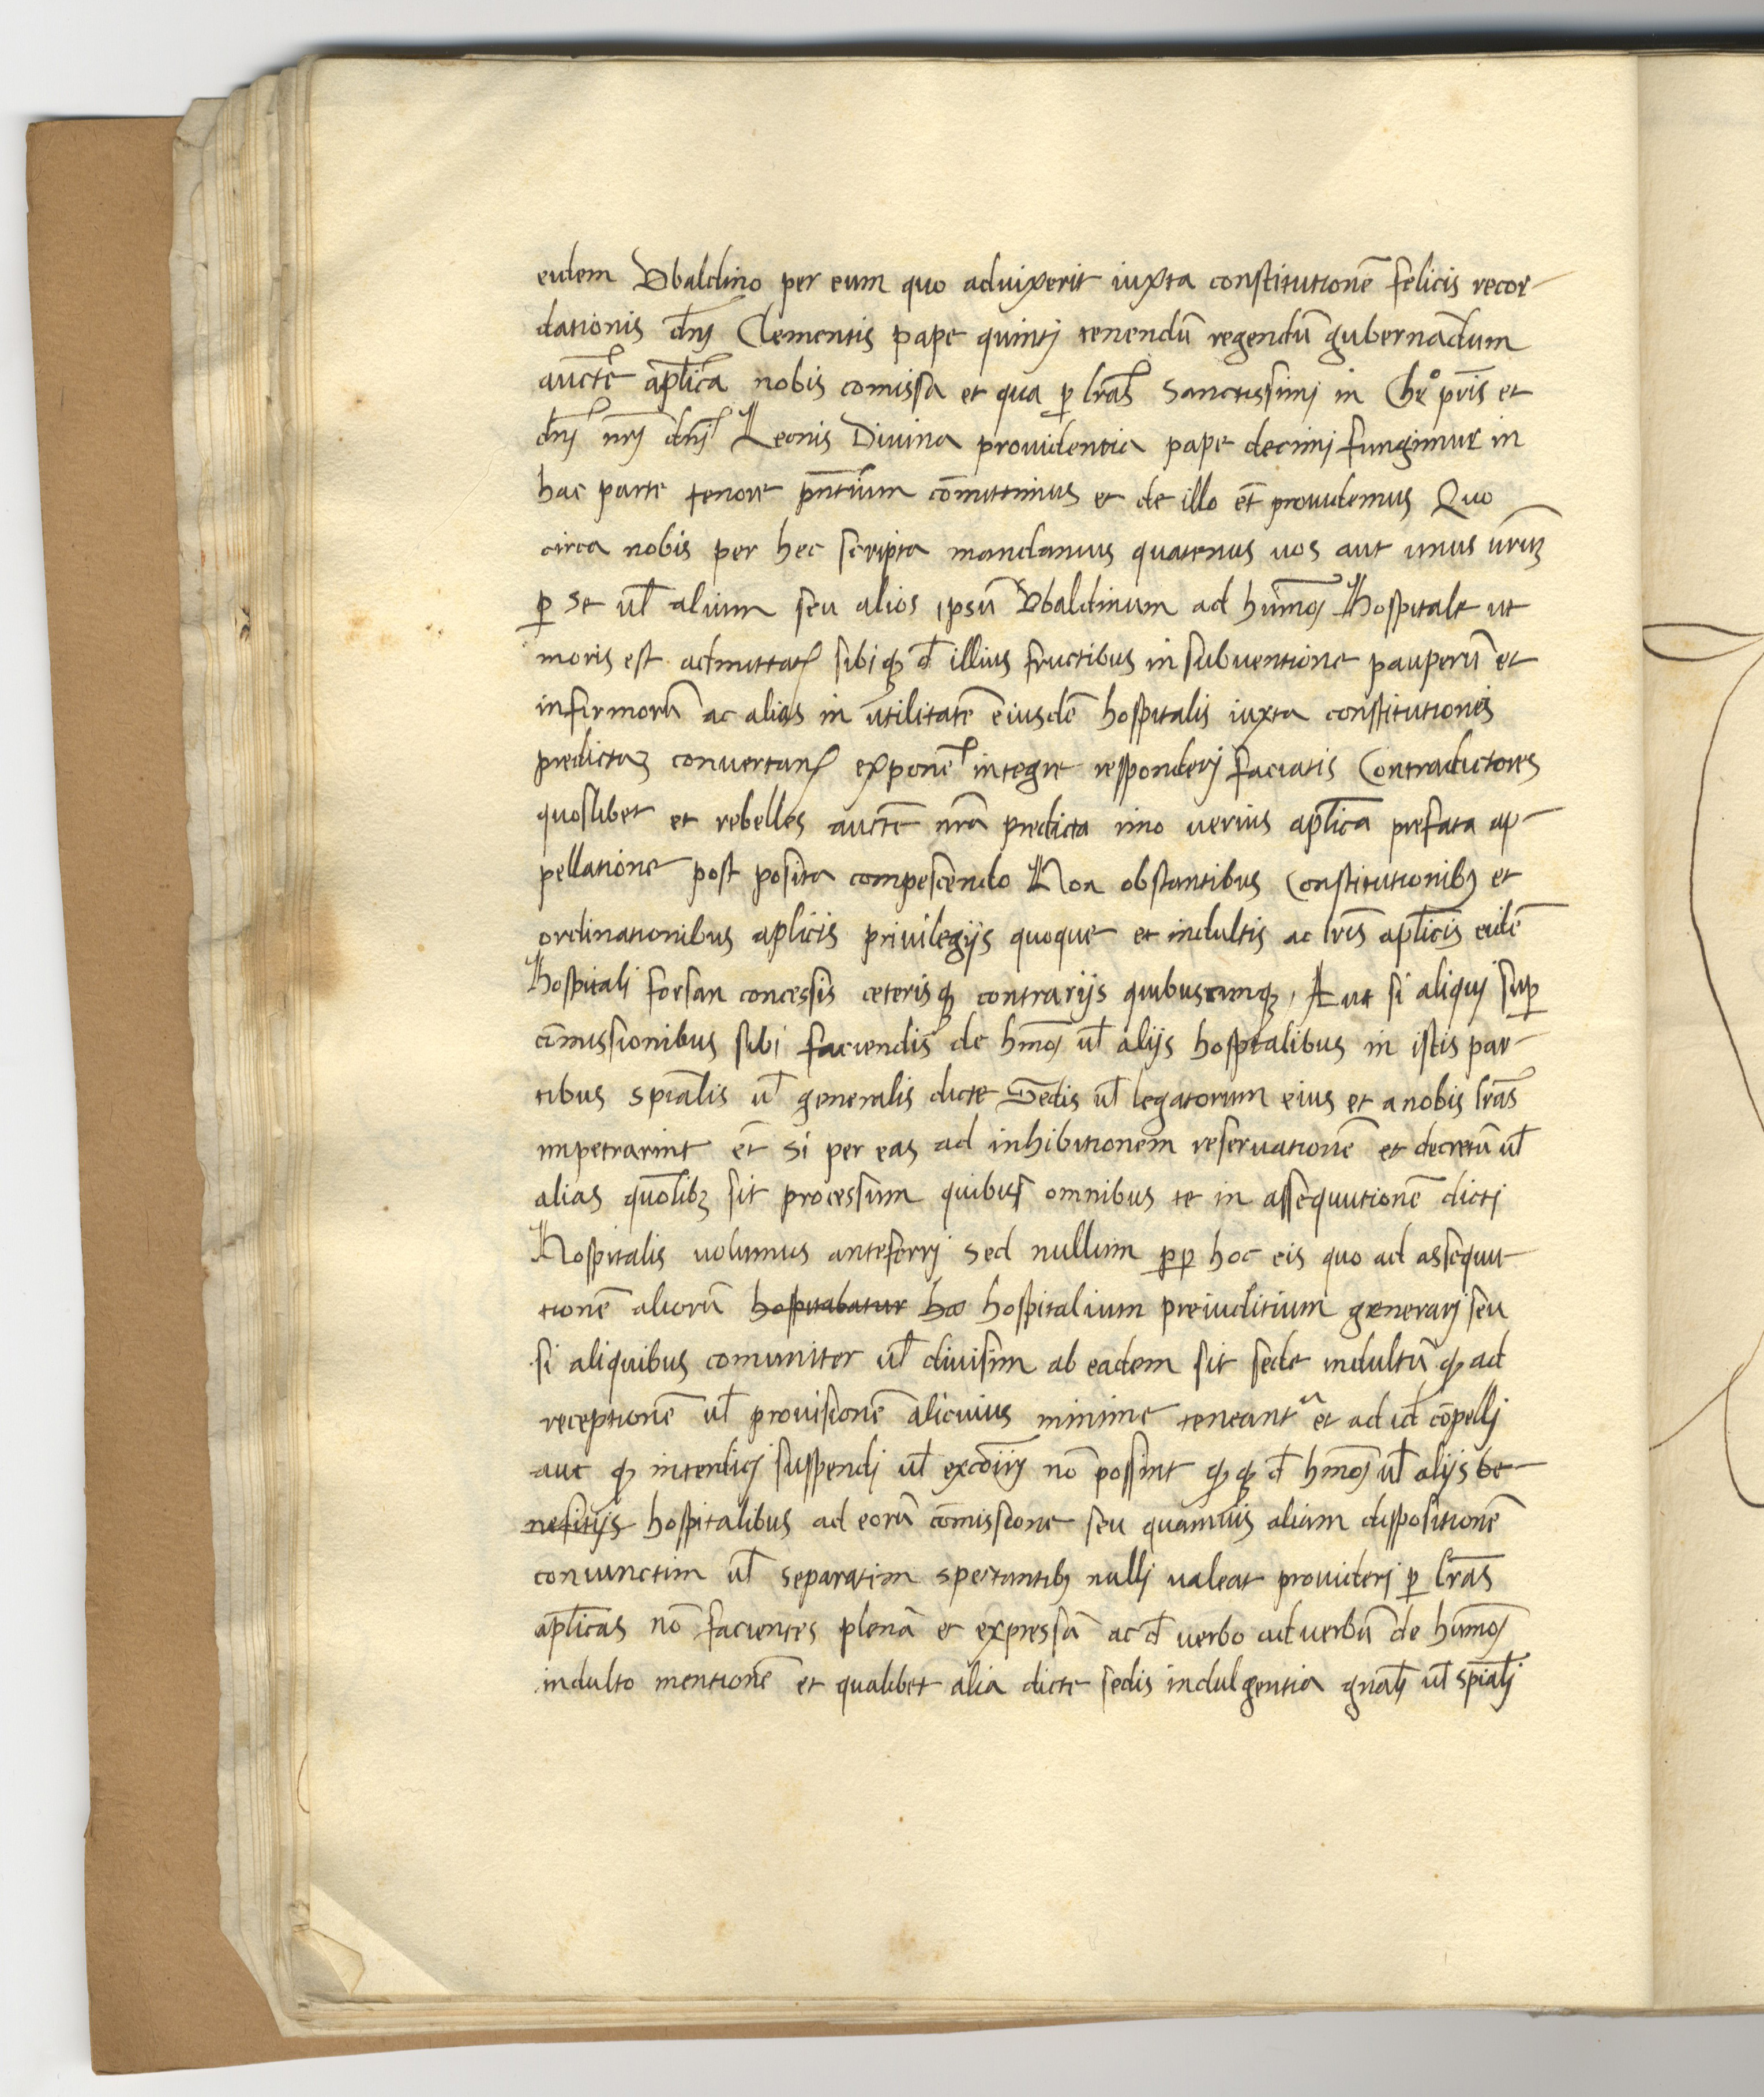 eidem Vbaldino per eum quo aduixerit iuxta constitutionē felicis recor-
dationis dn̄j Clementis pape quintj tenendū regendū gubernādum
auctē ap̄lica nobis comissa et qua p̱ lrās Sanctissimj in Chr̊ pr̄is et
dn̄j nr̄j dn̄j Leonis Diuina prouidentia pape decimj fungimur in
hac parte tenore pn̄tium cōmittimus et de illo et̄ prouidemus Quo
circa nobis per hec scripta mandamus quatenus uos aut unus ur̄uꝫ
p̱ se ul̄ alium seu alios ipsū Vbaldinum ad hūmoj Hospitale ut
moris est admittatꝭ sibiqꝫ d̄ illius fructibus in subuentione pauperū et
infirmorū ac alias in utilitatē eiusdē hospitalis iuxta constitutiones
predictaꝫ conuertanꝭ exponē integre responderj faciatis Contradictores
quoslibet et rebelles auctē nrā predicta imo uerius ap̄lica prefata ap-
pellatione post posita compescendo Non obstantibus Constitutionibꝫ et
ordinationibus aplicis priuilegijs quoque et indultis ac lr̄is ap̄licis eidē
Hospitali forsan concessis ceterisqꝫ contrarijs quibuscunqꝫ, Aut si aliquj sup̱
cōmissionibus sibi faciendis de hm̄oj ul̄ alijs hospitalibus in istis par-
tibus spiālis ul̄ generalis dicte Sedis ul̄ legatorum eius et a nobis lrās
impetrarint et̄ si per eas ad inhibitionem reseruationē et decretū ul̄
alias quōlibꝫ sit processum quibus omnibus te in assequutionē dictj
Hospitalis uolumus anteferrj sed nullum p̱p̱ hoc eis quo ad assequu-
tionē aliorū hospitabatur ho hospitalium preiuditium generarj seu
si aliquibus comuniter ul̄ diuisim ab eadem sit sede indultū qꝫ ad
receptionē ul̄ prouisionē alicuius minime teneantᵘ et ad id cōpellj
aut qꝫ interdicj suspendj ul̄ excōirj nō possint qꝫqꝫ d̄ hm̄oj ul̄ alijs be-
nefitijs hospitalibus ad eorū cōmissione seu quamuis aliam dispositionē
coniunctim ul̄ separatim spectantibꝫ nullj ualeat prouiderj p̱ lrās
ap̄licas nō facientes plenā et expressā ac d̄ uerbo ad uerbū de hūmoj
indulto mentionē et qualibet alia dicte sedis indulgentia gn̄alj ul̄ spiālj